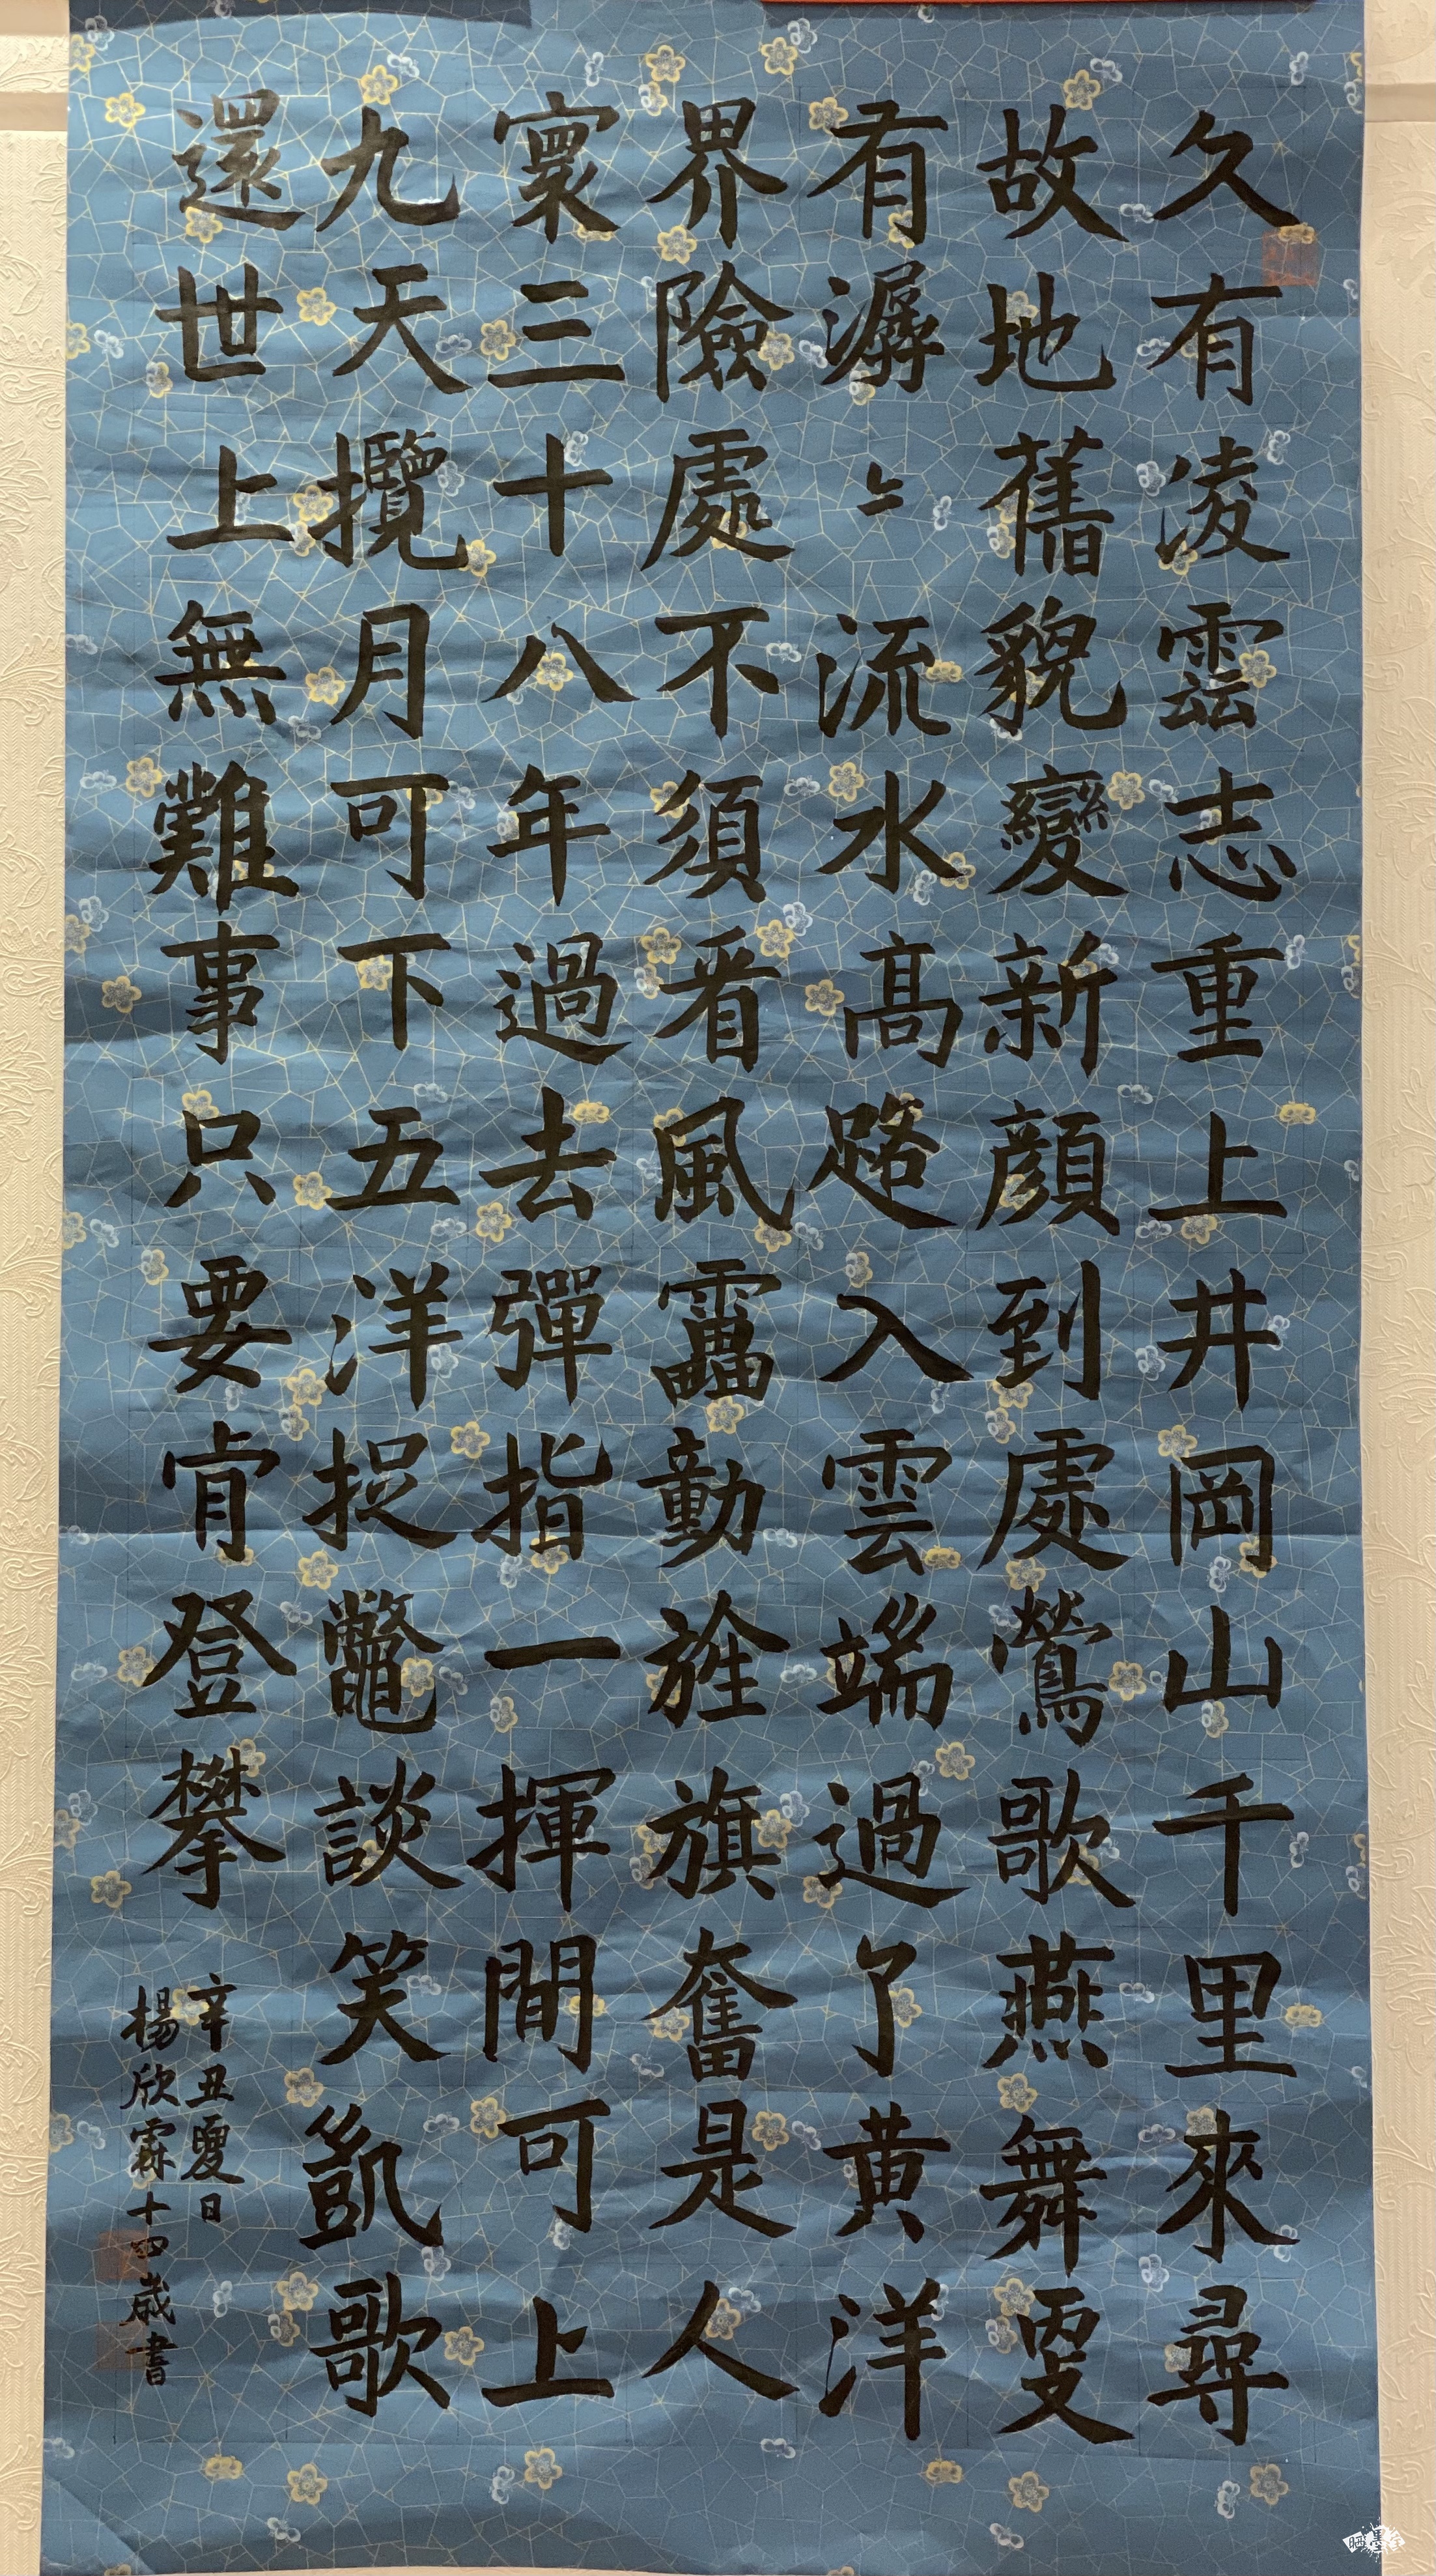 久有凌雲志重上井岡山千里來尋
故地舊貌變新顏到處鶯歌燕舞更
有潺〻流水高路入雲端過了黃洋
界險處不須看風靁動旌旗奮是人
寰三十八年過去彈指一揮間可上
九天攬月可下五洋捉鼈談笑凱歌
還世上無難事只要肯登攀
辛丑夏日
楊欣霖十四歲書
晒墨